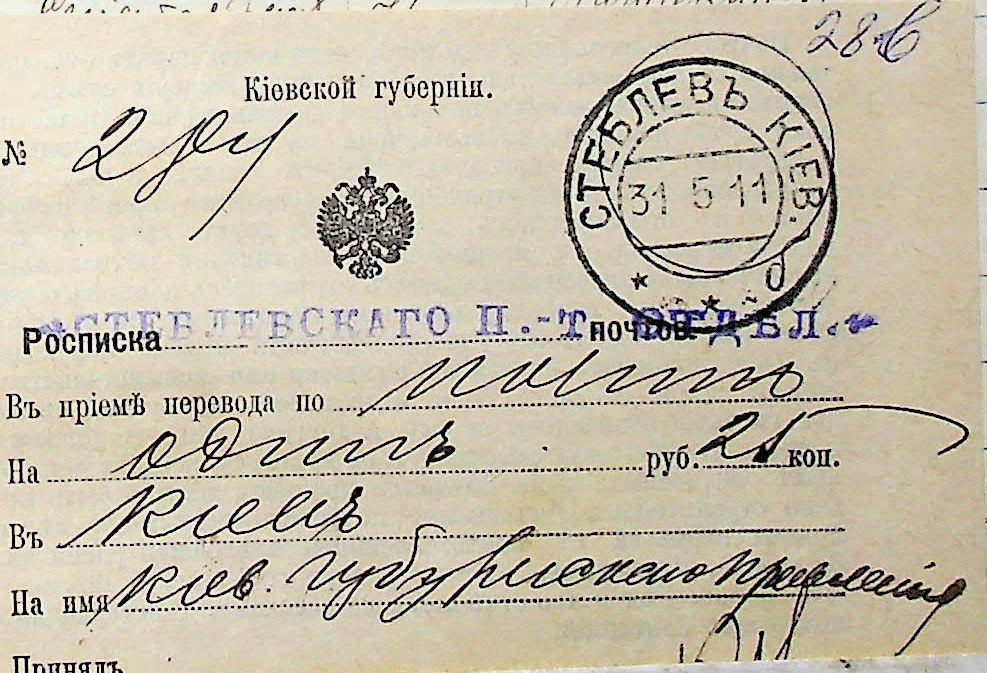 Кіевской губерніи.
№
СТЕБЛЕВЪ КІЕВ.
31 5 11
СТЕБЛЕВСКАГО П.-Т. ОТДѢЛ.
Росписка почтов.
Въ пріемѣ перевода по почтѣ
На одинъ руб. 25 коп.
Въ Кіевъ
На имя Кіев. Губернскаго Правленія
Принялъ